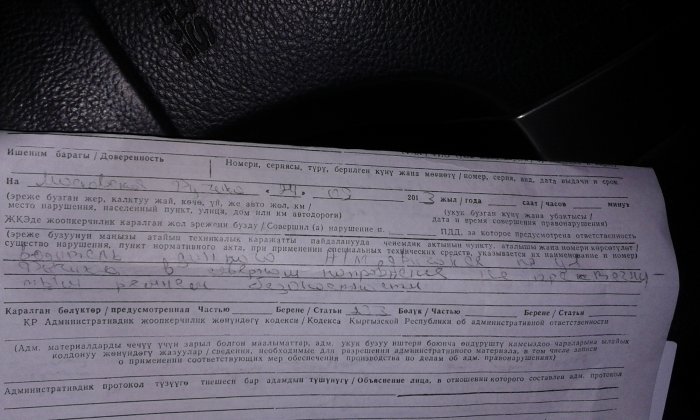 Ишеним барагы / Доверенность
Номери, сериясы, түрү, берилген күнү жана мөөнөтү / номер, серия, вид, дата выдачи и срок
На Московская 201 3 жыл / года саат / часов минут
(эреже бузган жер, калктуу жай, көчө, үй, же авто жол, км /
место нарушения, населенный пункт, улица, дом или км автодороги)
(укук бузган күнү жана убактысы /
дата и время совершения правонарушения)
ЖКЭде жоопкерчилик каралган жол эрежени бузду / Совершил (а) нарушение п. ПДД, за которое предусмотрена ответственность
(эреже бузуунун маңызы атайын техникалык каражатты пайдаланууда ченемдик актынын пункту, аталышы жана номери көрсөтүлөт /
существо нарушения, пункт нормативного акта, при применении специальных технических средств, указывается их наименование и номер)
водитель данного А/М двигался по ул
в северном направлении не
ремнем безопасности
Каралган бөлүктөр / предусмотренная Частью Берене / Статьи Бөлүк / Частью Берене / Статьи
КР Административдик жоопкерчилик жөнүндөгү кодекси / Кодекса Кыргызской Республики об административной ответственности
(Адм. материалдарды чечүү үчүн зарыл болгон маалыматтар, адм. укук бузуу иштери боюнча өндүрүштү камсыздоо чараларына ылайык
колдонуу жөнүндөгү жазуулар / сведения, необходимые для разрешения административного материала, в том числе записи
о применении соответствующих мер обеспечения производства по делам об адм. правонарушениях)
Административдик протокол түзүүгө тиешеси бар адамдын түшүнүгү / Объяснение лица, в отношении которого составлен адм. протокол